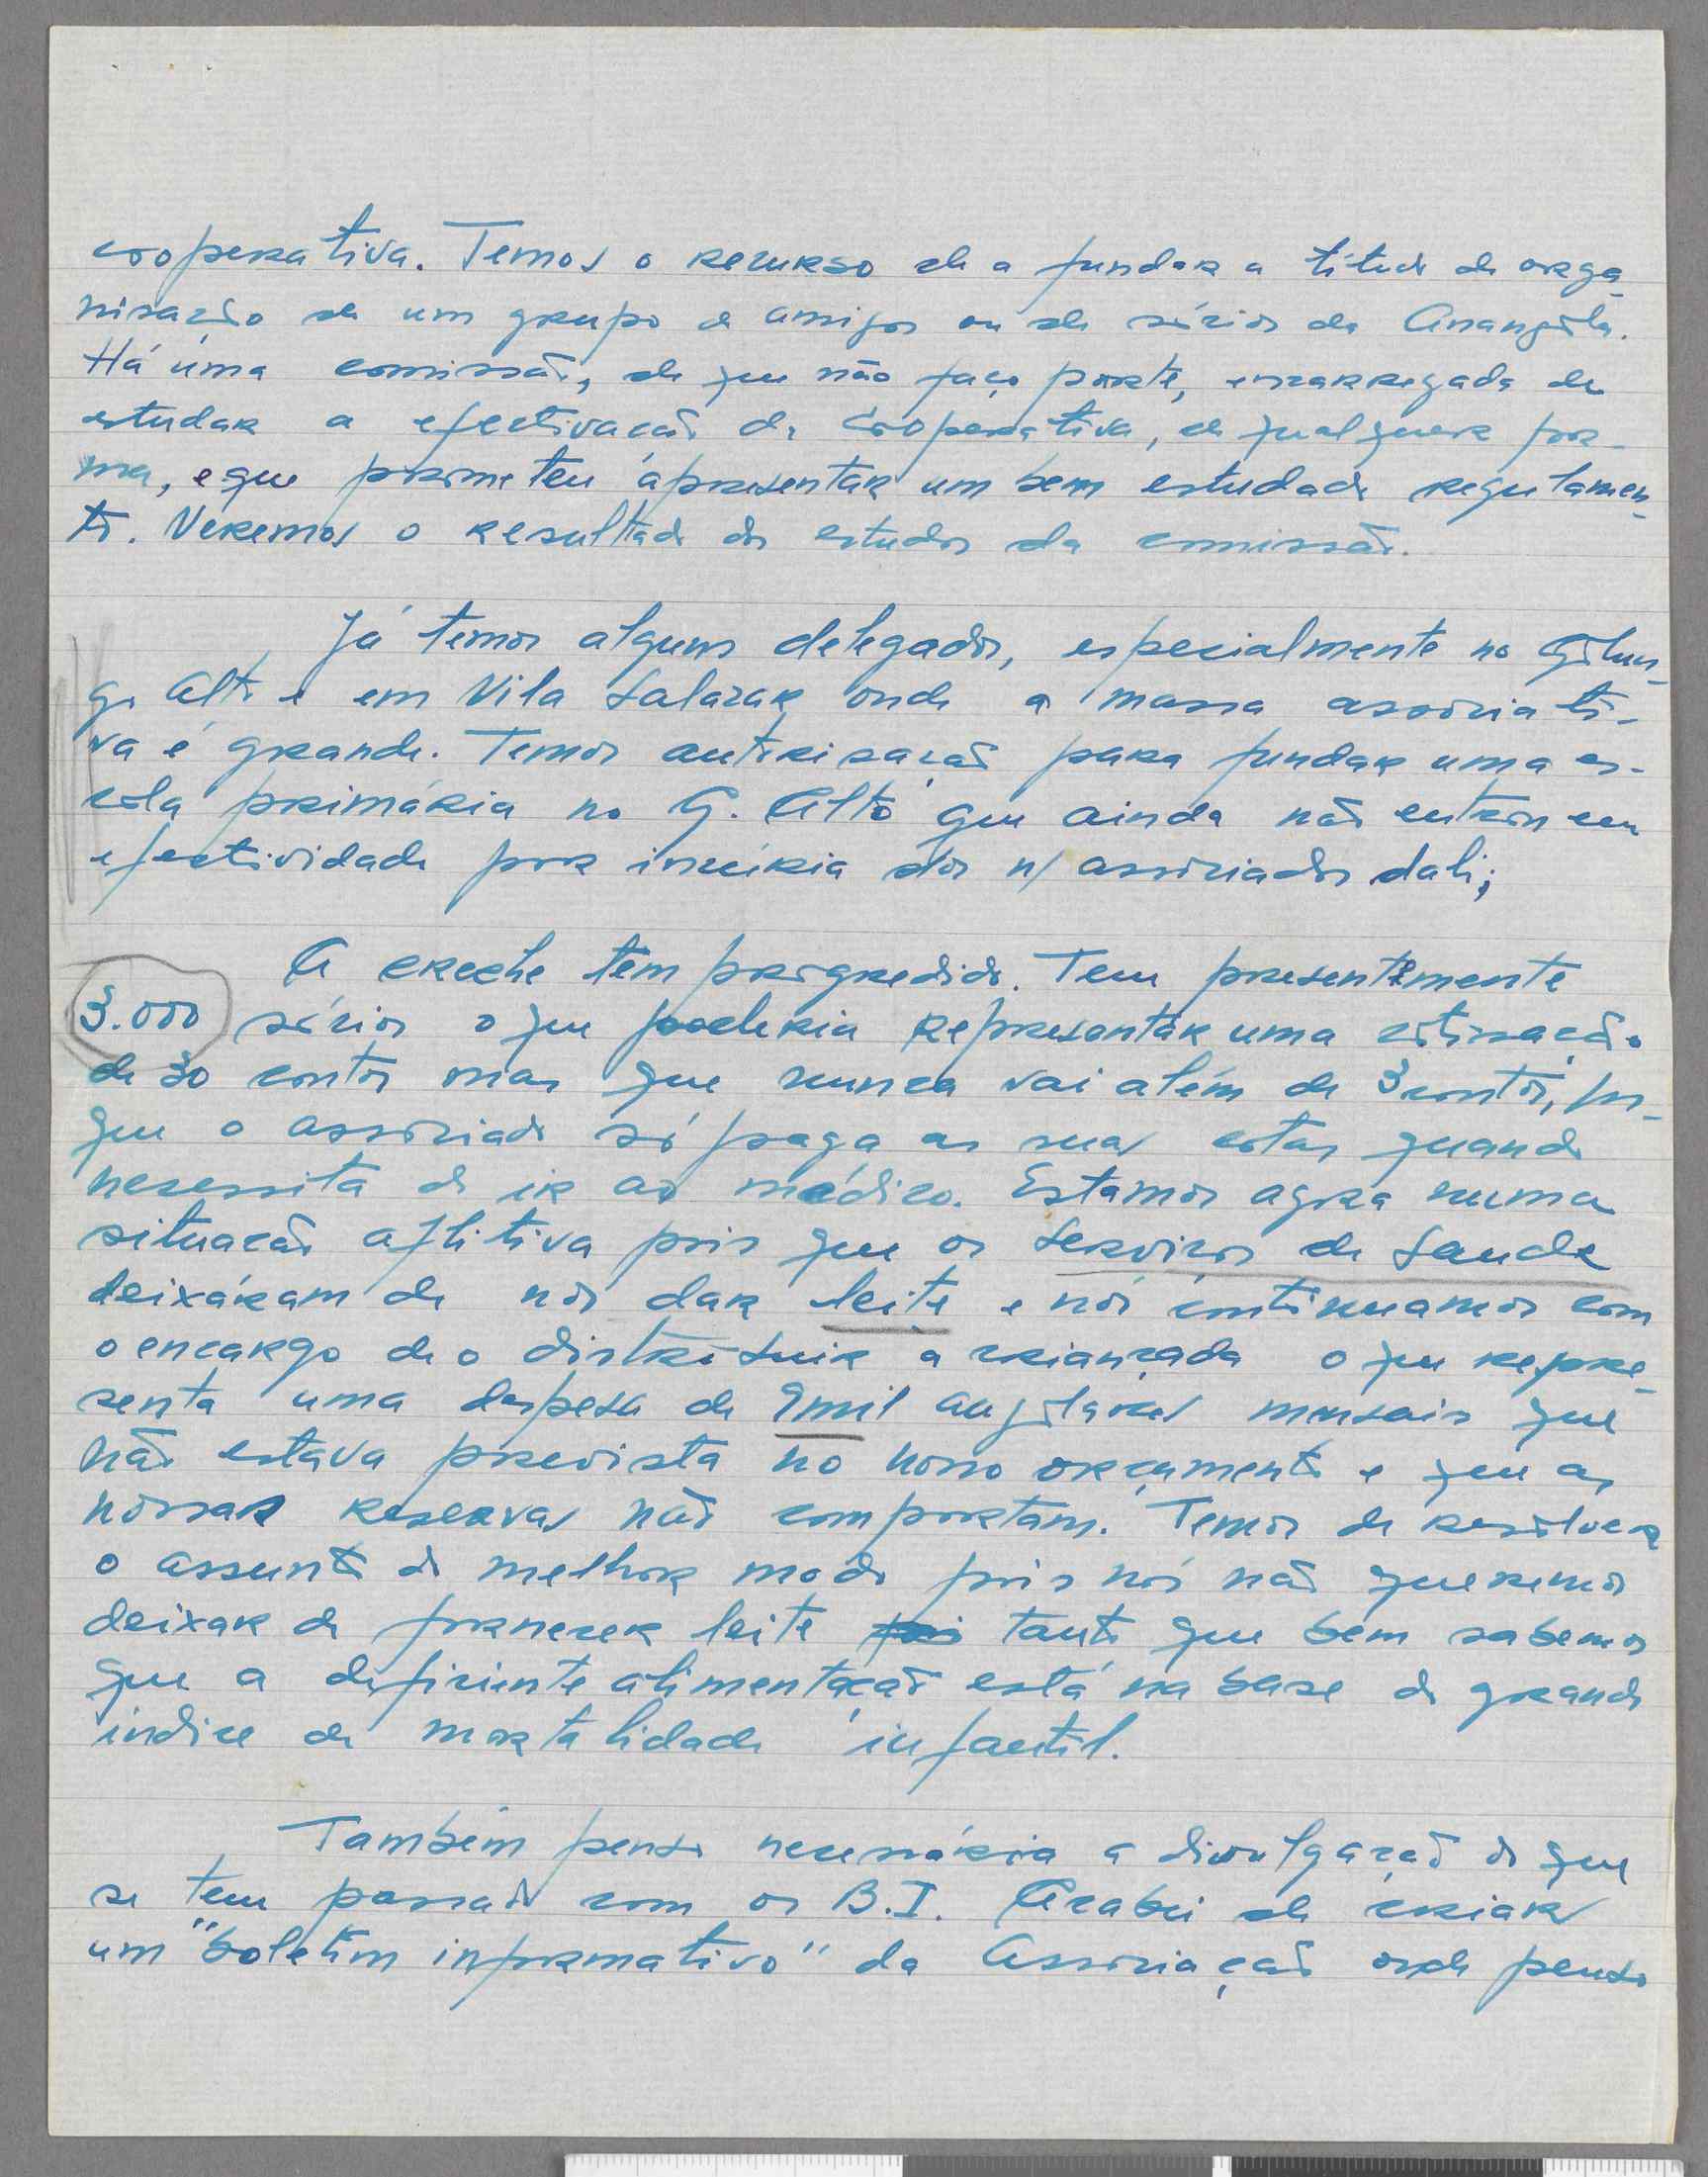 cooperativa. Temos o recurso de a fundar a título de orga-
nisação de um grupo de amigos ou de sócios da Anangola.
Há uma comissão, de que não faço parte, encarregada de
estudar a efectivação da Cooperativa, de qualquer for-
ma, e que prometeu apresentar um bem estudado regulamen-
to. Veremos o resultado dos estudos da comissão.
Já temos alguns delegados, especialmente no Golun-
go Alto e em Vila Salazar, onde a massa associati-
va é grande. Temos autorisação para fundar uma es-
cola primária no G. Alto que ainda não entrou em
efectividade por incúria dos n/ associados dali;
A creche tem progredido. Tem presentemente
3.000 sócios o que poderia representar uma cotisação
de 30 contos mas que nunca vai além de 3 contos, por-
que o associado só paga as suas cotas quando
necessita de ir ao médico. Estamos agora numa
situação aflitiva pois que os Serviços de Saude
deixáram de nos dar leite e nós continuamos com
o encargo de o distribuir a criançada o que repre-
senta uma despesa de mil angolares mensais que
não estava prevista no nosso orçamento e que as
nossas reservas não comportam. Temos de resolver
o assunto do melhor modo pois nós não queremos
deixar de fornecer leite tanto que bem sabemos
que a deficiente alimentação está na base do grande
índice de mortalidade infantil.
Também penso necessária a divulgação do que
se tem passado com os B.I. Acabei de criar
um "boletim informativo" da Associação onde penso